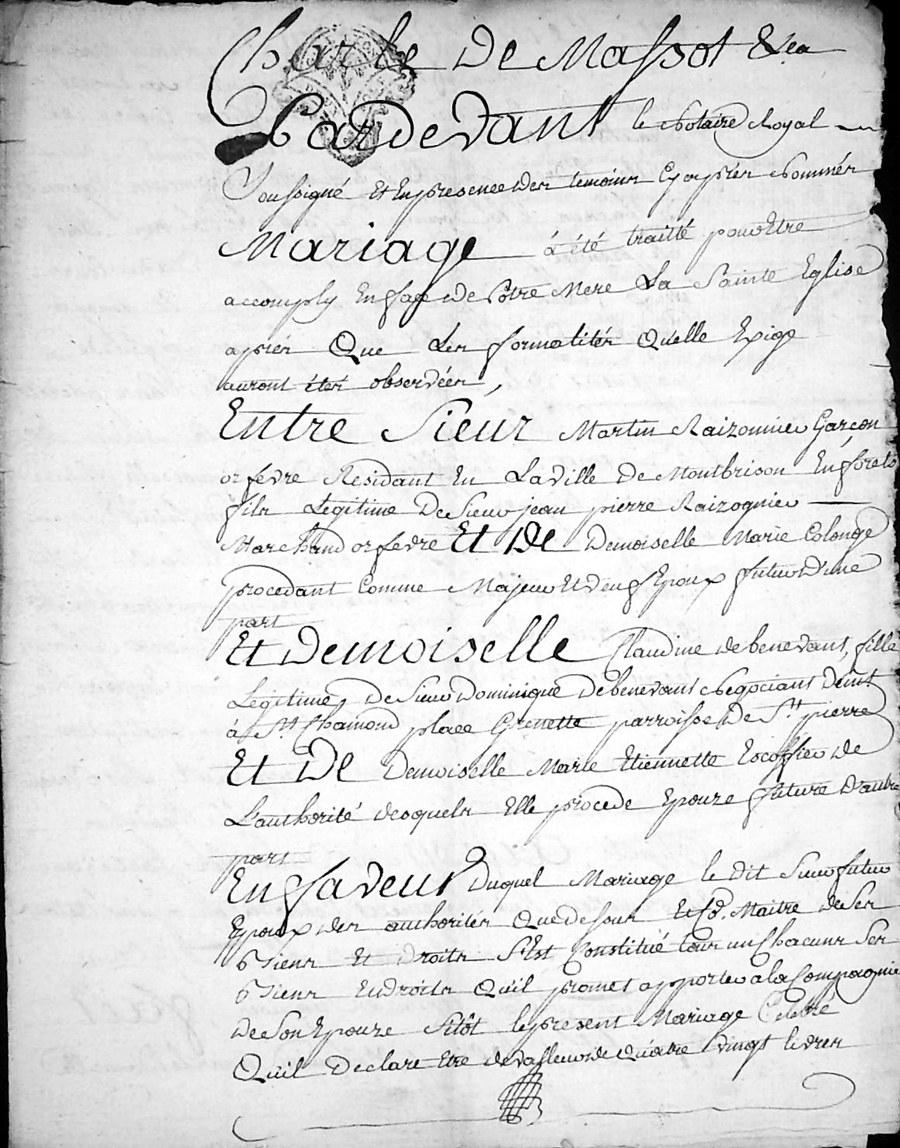 Charle De Massot &ca
Pardevant le Notaire Royal
soussigné Et En presence des temoins Cy aprés Nommés
Mariage à été traitté pour Etre
accomply En face de Nôtre Mere La Sainte Eglise
aprés Que Les formalités Quelle Exige
auront étés observées,
Entre Sieur Martin Raizonnier Garçon
orfevre Residant En La Ville De Montbrison En forets
fils Legitime De Sieur jean pierre Raizognier
Marchand orfevre Et De Demoiselle Marie Colonge
procedant Comme Majeur Et Veuf Epoux futur d'une
part
Et Demoiselle Claudine de benevant, fille
Legitime de Sieur Dominique De benevant Negociant
à St Chamond place Grenette parroisse de St. pierre
Et De Demoiselle Marie Etiennette Escoffier de
L'authorité desquels Elle procede Epouze future D'autre
part
En faveur Duquel Mariage le dit Sieur futur
Epoux des authorités Que dessus Maitre de Ses
biens Et droits S'Est Constitué tous un Chacuns Ses
biens En droits Quil promet apporter a la Compagnie
De Son Epouze Sitôt le present Mariage Celebré
Quil Declare Etre de Valleur de Quatre Vingt livres